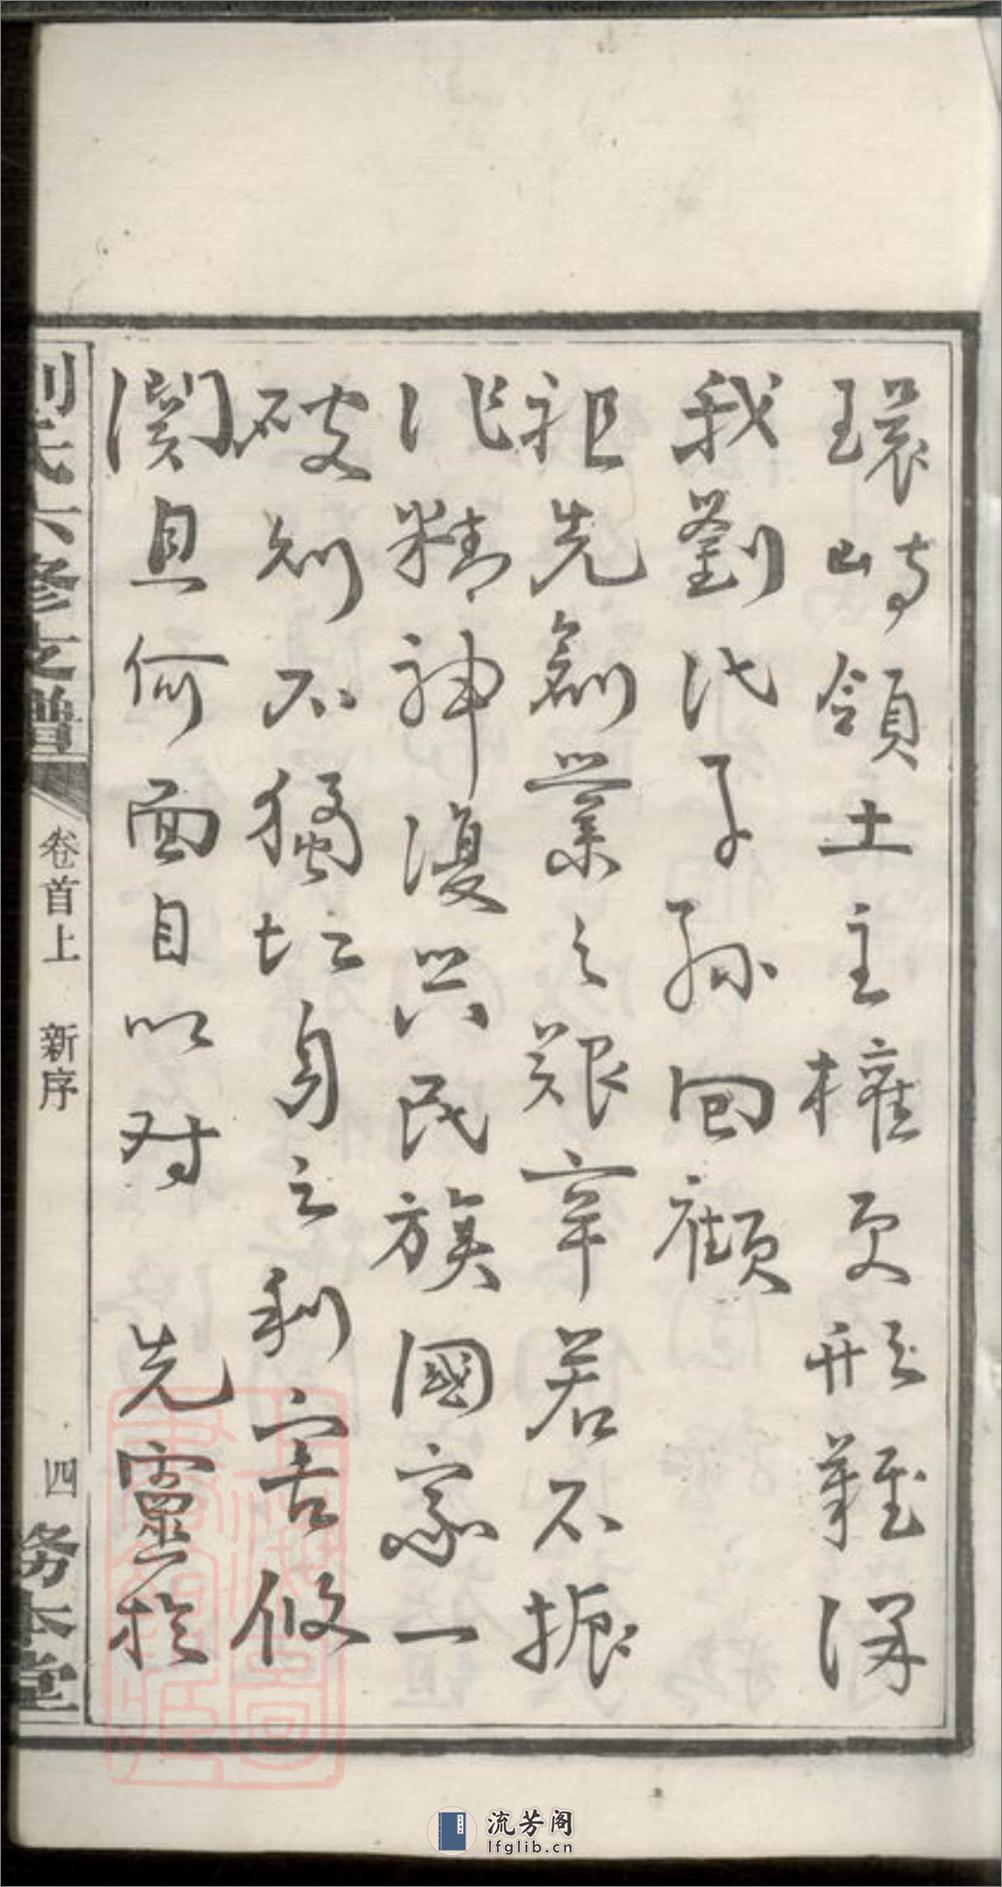 環峙領土主權更形難保
我劉氏子孫回顧
祖先創業之艱辛若不振
作精神復興民族國家一
破則不獨切身之利害攸
關且何面目以對 先靈於
劉氏六修支譜 卷首上 新序 四 務本堂
上海圖書館藏
流芳阁
lfglib.cn